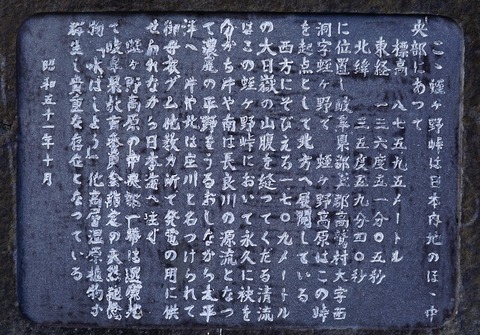 こゝ蛭ヶ野峠は日本内地のほゞ中
央部にあって
標高 八七五九五メートル
東経 一三六度五一分〇五秒
北緯 三五度五九分四〇秒
に位置し岐阜県郡上郡高鷲村大字西
洞字蛭ヶ野で 蛭ヶ野高原はこの峠
を起点として北方へ展開している
西方にそびえる一七〇九メートル
の大日嶽の山腹を縫ってくだる清流
はこの蛭ヶ野峠において永久に袂を
分かち片や南は長良川の源流となっ
て濃尾の平野をうるおしながら太平
洋へ 片や北は庄川と名つけられて
御母衣ダム他数ヵ所で発電の用に供
せられながら日本海へ注ぐ
蛭ヶ野高原の中央部一帯は
て岐阜県教育委員会指定の天然記念
物「水ばしょう」他高層湿原植物が
群生し貴重な存在となっている
昭和五十一年十月